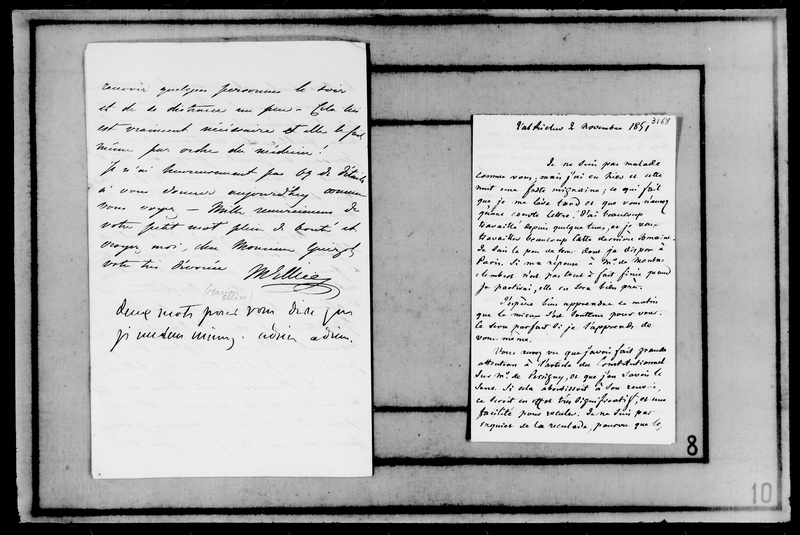 recevoir quelques personnes le soir
et de se distraire un peu – Cela lui
est vraiment nécessaire et elle le fait
même par ordre du médecin !
Je n'ai heureusement pas bq de détails
à vous donner aujourd'hui comme
vous voyez – Mille remerciemens de
votre petit mot plein de bonté et
croyez moi, cher Monsieur Guizot
votre très dévouée MEllice
Marion
Ellice
deux mots pour vous dire que
je me sens mieux. adieu adieu.
Val Richer 2 novembre 1851
3168
Je ne suis pas malade
comme vous ; mais j'ai eu hier et cette
nuit une forte migraine ; ce qui fait
que je me lève tard et que vous n'aurez
qu'une courte lettre. J'ai beaucoup
travaillé depuis quelque tems, et je veux
travailler beaucoup cette dernière semaine.
Je sais le peu de tems dont je dispose à
Paris. Si ma réponse à Mr. de Monta-
-lembert n'est pas tout à fait finie quand
je partirai, elle en sera bien près.
J'espère bien apprendre ce matin
que le mieux s'est soutenu pour vous.
Ce sera parfait si je l'apprends de
vous-même.
Vous aurez vu que j'avois fait grande
attention à l'article du Constitutionnel
sur Mr. de Persigny, et que j'en savois le
sens. Si cela aboutissoit à son renvoi,
ce seroit en effet très significatif, et une
facilité pour reculer. Je ne suis pas
inquiet de la reculade, pourvu que le,
8
10